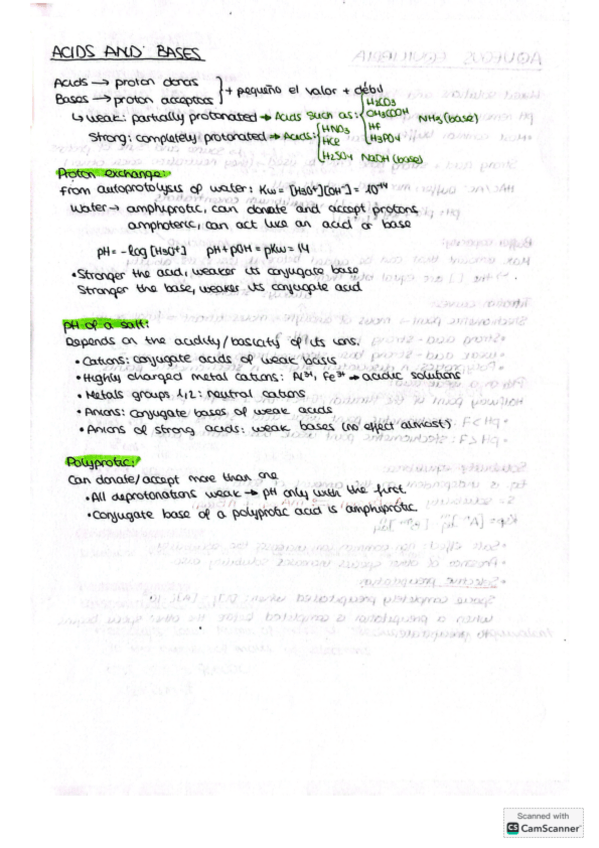 ACIDS AND BASES
Acids → proton donors
Bases → proton acceptors } + pequeño el valor + débil
↳ weak: partially protonated → Acids such as: { H2CO3 CH3COOH HF H3PO4 NH3 (base)
Strong: completely protonated → Acids: { HNO3 HCl H2SO4 NaOH (base)
Proton exchange:
From autoprotolysis of water: Kw = [H3O+][OH-] = 10^-14
Water → amphiprotic, can donate and accept protons
amphoteric, can act like an acid or base
pH = -log [H3O+] pH + pOH = pKw = 14
• Stronger the acid, weaker its conjugate base
Stronger the base, weaker its conjugate acid
pH of a salt:
Depends on the acidity/basicity of its ions.
• Cations: conjugate acids of weak basis
• Highly charged metal cations: Al3+, Fe3+ → acidic solutions
• Metals groups 1,2: neutral cations
• Anions: conjugate bases of weak acids
• Anions of strong acids: weak bases (no effect almost)
Polyprotic:
Can donate/accept more than one
• All deprotonations weak → pH only with the first
• Conjugate base of a polyprotic acid is amphiprotic.
Scanned with
CS CamScanner